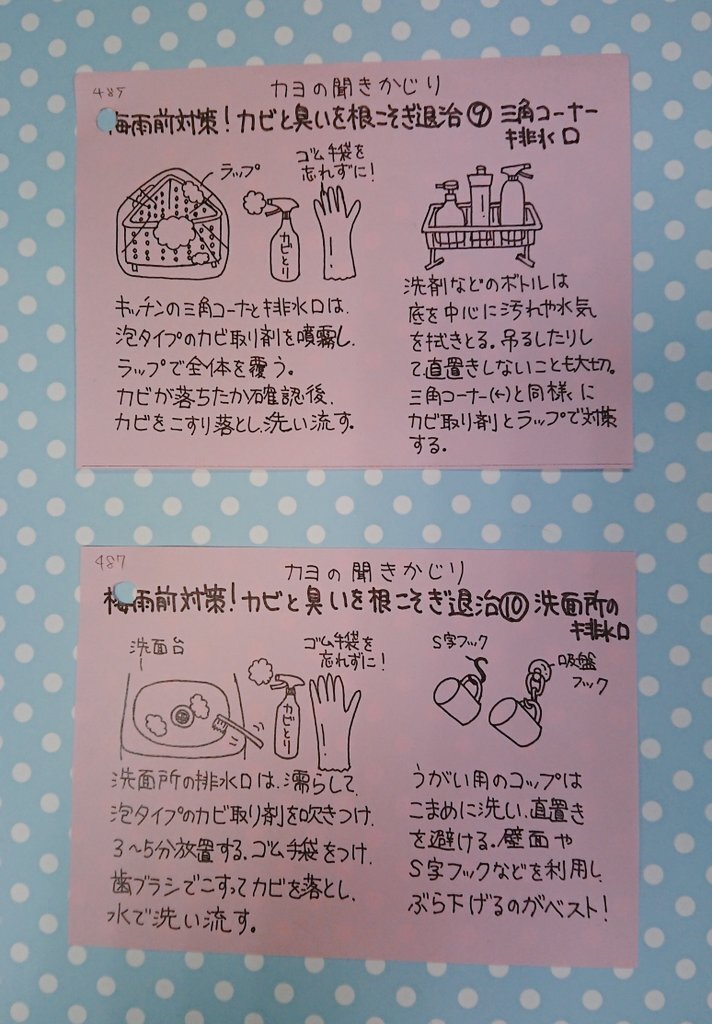 485
カヨの聞きかじり
梅雨前対策!カビと臭いを根こそぎ退治⑨ 三角コーナー
排水口
ラップ
ゴム手袋を
忘れずに!
カビとり
キッチンの三角コーナーと排水口は、
泡タイプのカビ取り剤を噴霧し、
ラップで全体を覆う。
カビが落ちたか確認後、
カビをこすり落とし、洗い流す。
洗剤などのボトルは
底を中心に汚れや水気
を拭きとる。吊るしたりし
て直置きしないことも大切。
三角コーナー(←)と同様に
カビ取り剤とラップで対策
する。
487
カヨの聞きかじり
梅雨前対策!カビと臭いを根こそぎ退治⑩ 洗面所の
排水口
洗面台
ゴム手袋を
忘れずに!
カビとり
S字フック
吸盤
フック
洗面所の排水口は、濡らして、
泡タイプのカビ取り剤を吹きつけ、
3〜5分放置する。ゴム手袋をつけ、
歯ブラシでこすってカビを落とし、
水で洗い流す。
うがい用のコップは
こまめに洗い、直置き
を避ける。壁面や
S字フックなどを利用し、
ぶら下げるのがベスト!